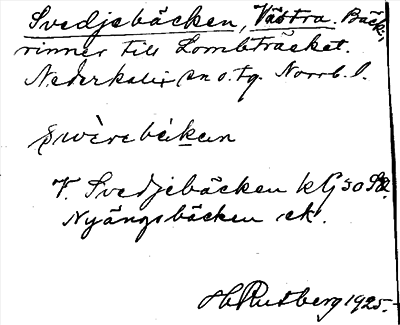 Svedjebäcken, Västra. Bäck,
rinner till Lombträsket.
Nederkalix sn o. tg. Norrb. l.
swèrebäiken
V. Svedjebäcken kG 50
Nyängsbäcken ek.
Rutberg 1925.